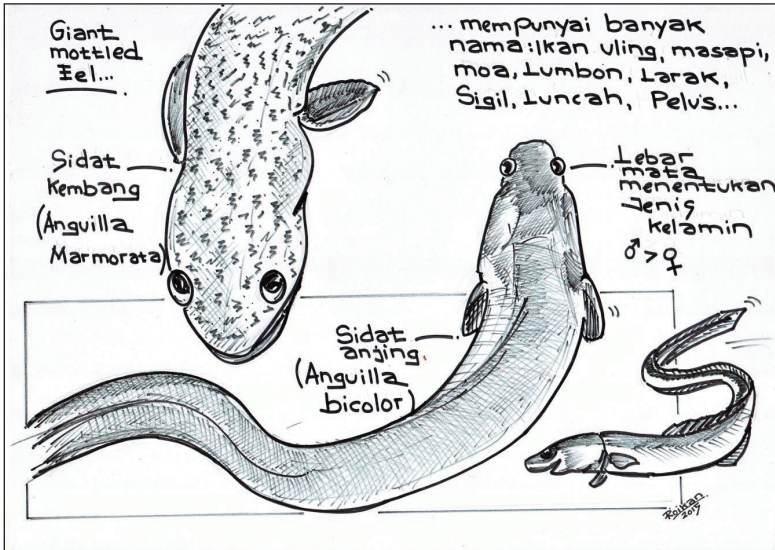 Giant
mottled
Eel...
... mempunyai banyak
nama:Ikan uling, masapi,
moa, Lumbon, Larak,
Sigil, Luncah, Pelus...
Sidat
kembang
(Anguilla
Marmorata)
Lebar
mata
menentukan
Jenis
kelamin
♂>♀
Sidat
anjing
(Anguilla
bicolor)
Roikan
2015